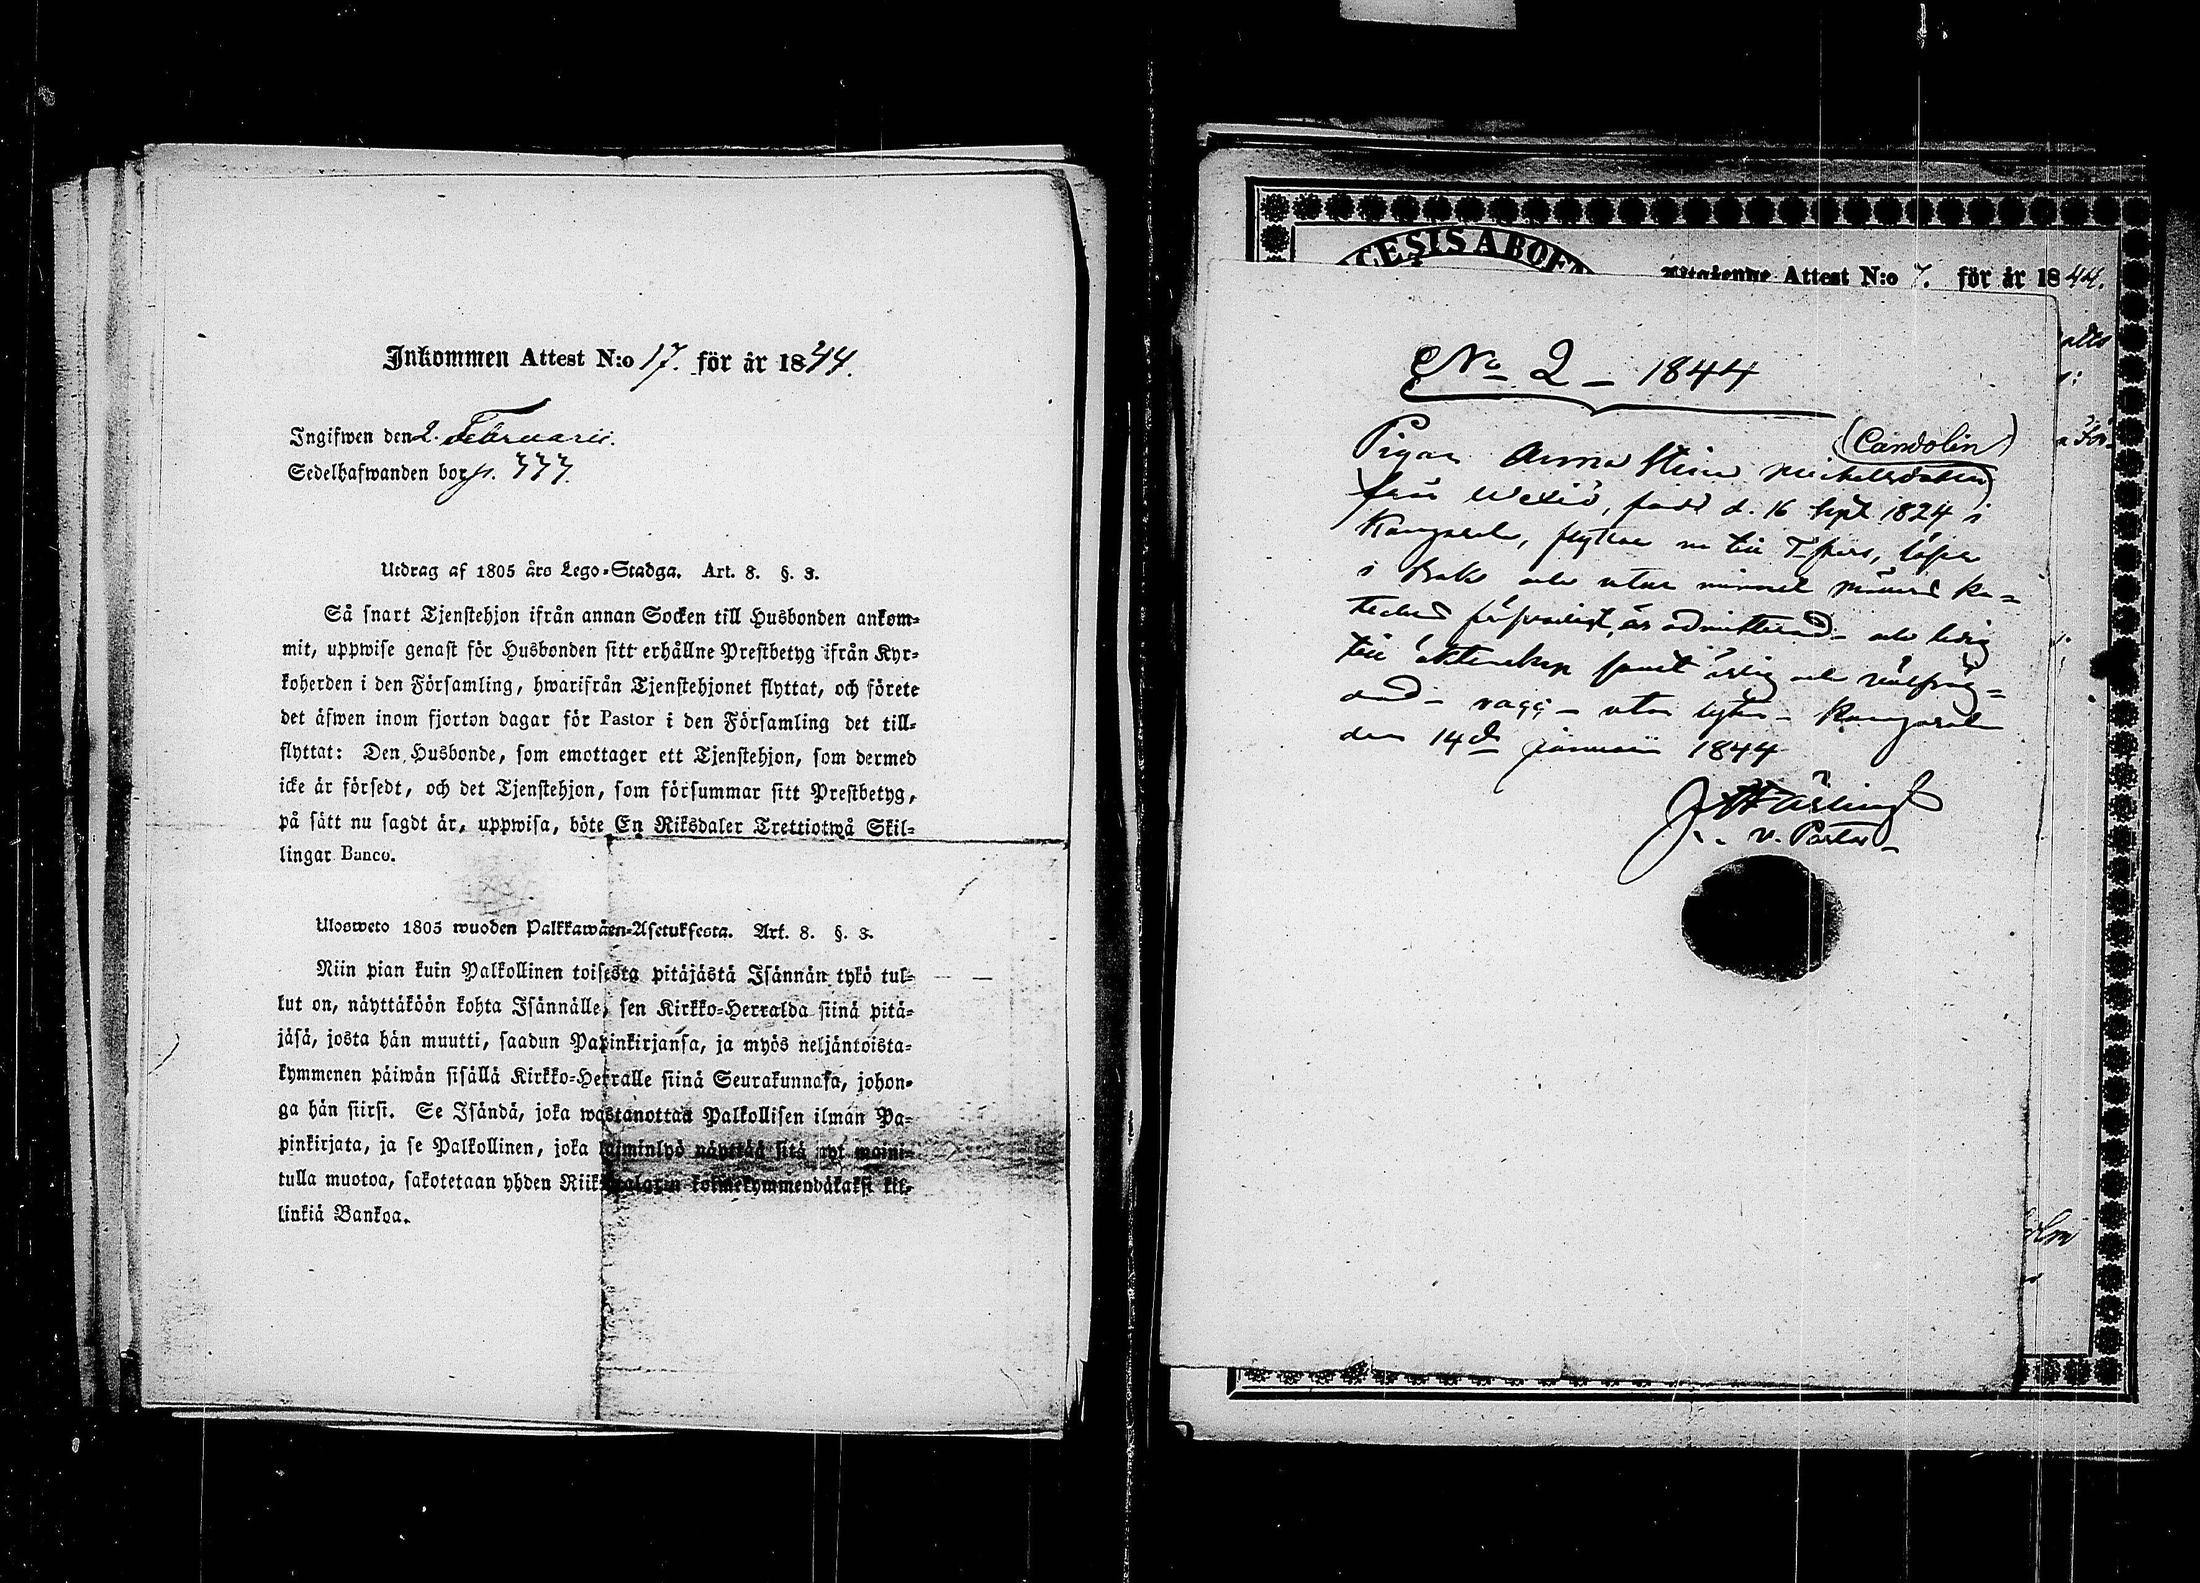 Inkommen Attest N:o 17. för år 1844.
Ingifwen den 2. Februarii.
Sedelhafwanden bor p. 777.
Utdrag af 1805 års Lego-Stadga. Art. 8. §. 3.
Så snart Tjenstehjon ifrån annan Socken till Husbonden ankom-
mit, uppwise genast för Husbonden sitt erhållne Prestbetyg ifrån Kyr-
koherden i den Församling, hwarifrån Tjenstehjonet flyttat, och förete
det äfwen inom fjorton dagar för Pastor i den Församling det till-
flyttat: Den Husbonde, som emottager ett Tjenstehjon, som dermed
icke är försedt, och det Tjenstehjon, som försummar sitt Prestbetyg,
på sätt nu sagdt är, uppwisa, böte En Riksdaler Trettiotwå Skil-
lingar Banco.
Ulosweto 1805 wuoden Palkkawäen-Asetuksesta. Art. 8. §. 3.
Niin pian kuin Palkollinen toisesta pitäjästä Isännän tykö tul-
lut on, näyttäköön kohta Isännälle, sen Kirkko-Herralda siinä pitä-
jäsä, josta hän muutti, saadun Papinkirjansa, ja myös neljäntoista-
kymmenen päiwän sisällä Kirkko-Herralle siinä Seurakunnasa, johon-
ga hän siirsi. Se Isändä, joka wastanottaa Palkollisen ilman Pa-
pinkirjata, ja se Palkollinen, joka laiminlyö näyttää sitä nyt maini-
tulla muotoa, sakotetaan yhden Riiksdalarin kolmekymmendäkaksi kil-
linkiä Bankoa.
CESIS ABOE
Utgående Attest N:o 7. för år 1844.
No 2 - 1844
(Candolin)
Pigan Anna Stina Michelsdotter
från Wexiö, född d. 16 Sept 1824 i
Kangasala, flyttar nu till T-fors, läser
i bok och utan minnet Ka-
teches försvarligt, är admitterad - och ledig
till äktenskap samt ärlig och välfräg-
dad - vacc - utan lyten - Kangasala
den 14de Januarii 1844
v. Pastor